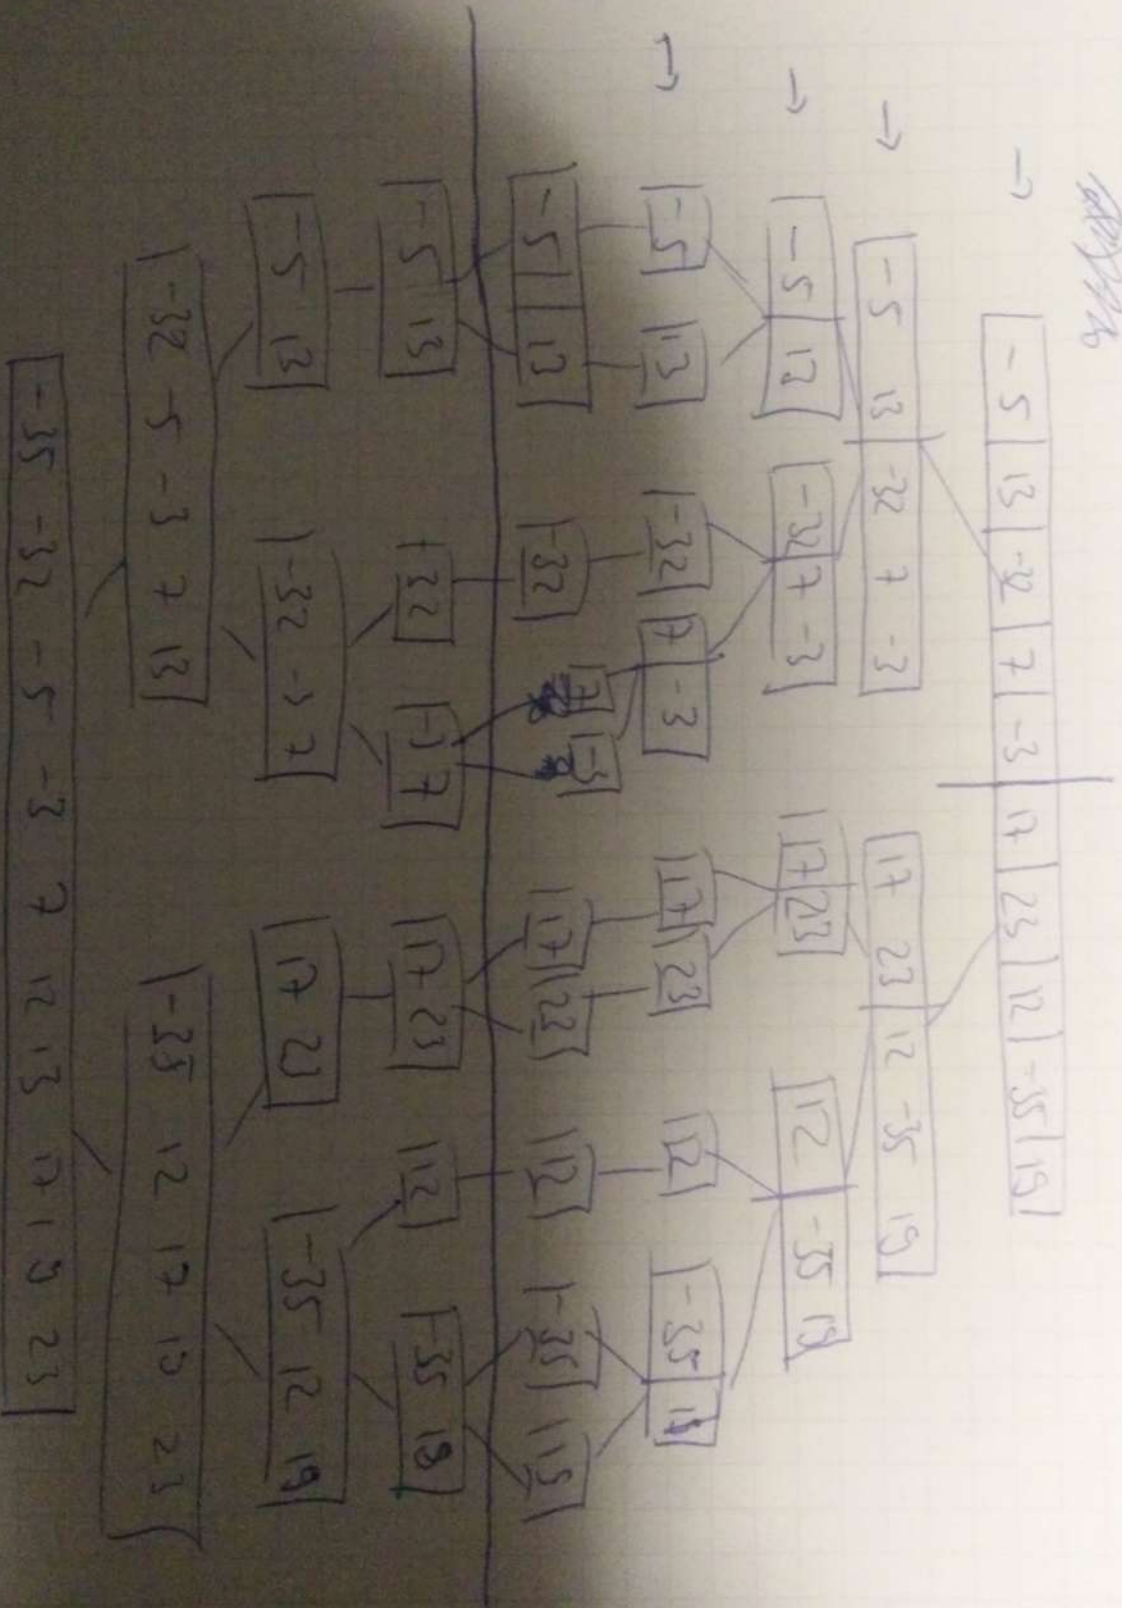 - 5 | 13 | -32 | 7 | -3 | 17 | 23 | 12 | -35 | 19
- 5 13 -32 7 -3 17 23 12 -35 19
- 5 12 -32 7 -3 17 23 12 -35 19
-5 13 -32 7 -3 17 23 12 -35
-5 13 -32 7 -3 17 23 12 -35 19
-5 13 32 7 17 23 12 -35 19
-5 13 -32 -3 7 17 23 -35 12 19
-32 -5 -3 7 13 -35 12 17 19 23
-35 -32 -5 -3 7 12 13 17 19 23